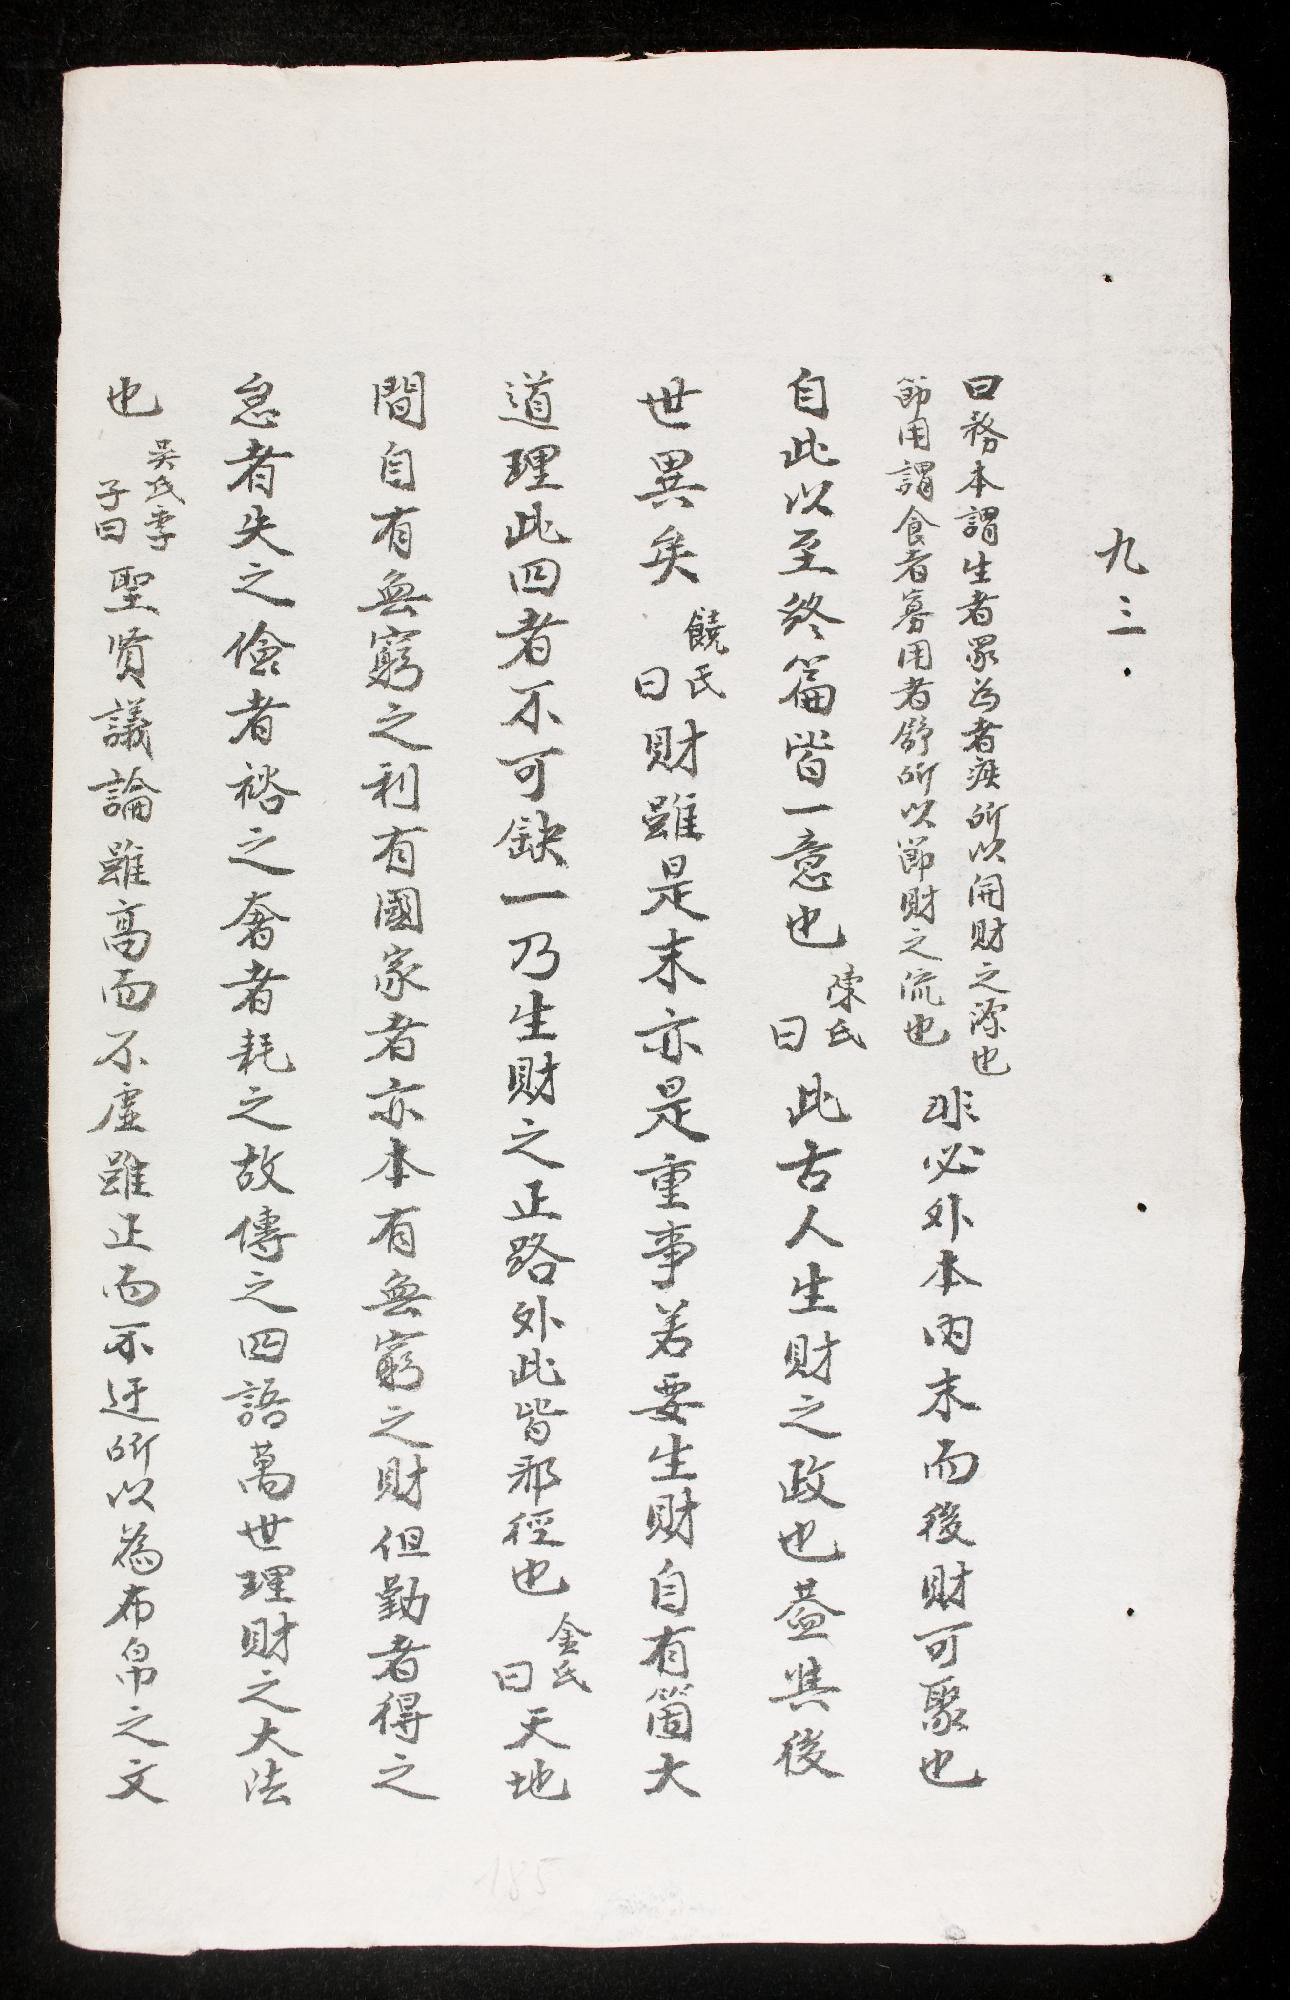 九三
曰務本謂生者眾為者疾所以開財之源也
節用謂食者寡用者舒所以節財之流也
非必外本內末而後財可聚也
自此以至終篇皆一意也陳氏曰此古人生財之政也蓋與後
世異矣饒氏曰財雖是末亦是重事若要生財自有箇大
道理此四者不可缺一乃生財之正路外此皆邪徑也金氏曰天地
間自有無窮之利有國家者亦本有無窮之財但勤者得之
怠者失之儉者裕之奢者耗之故傳之四語萬世理財之大法
也吳氏季子曰聖賢議論雖高而不虛雖正而不迂所以為布帛之文
185